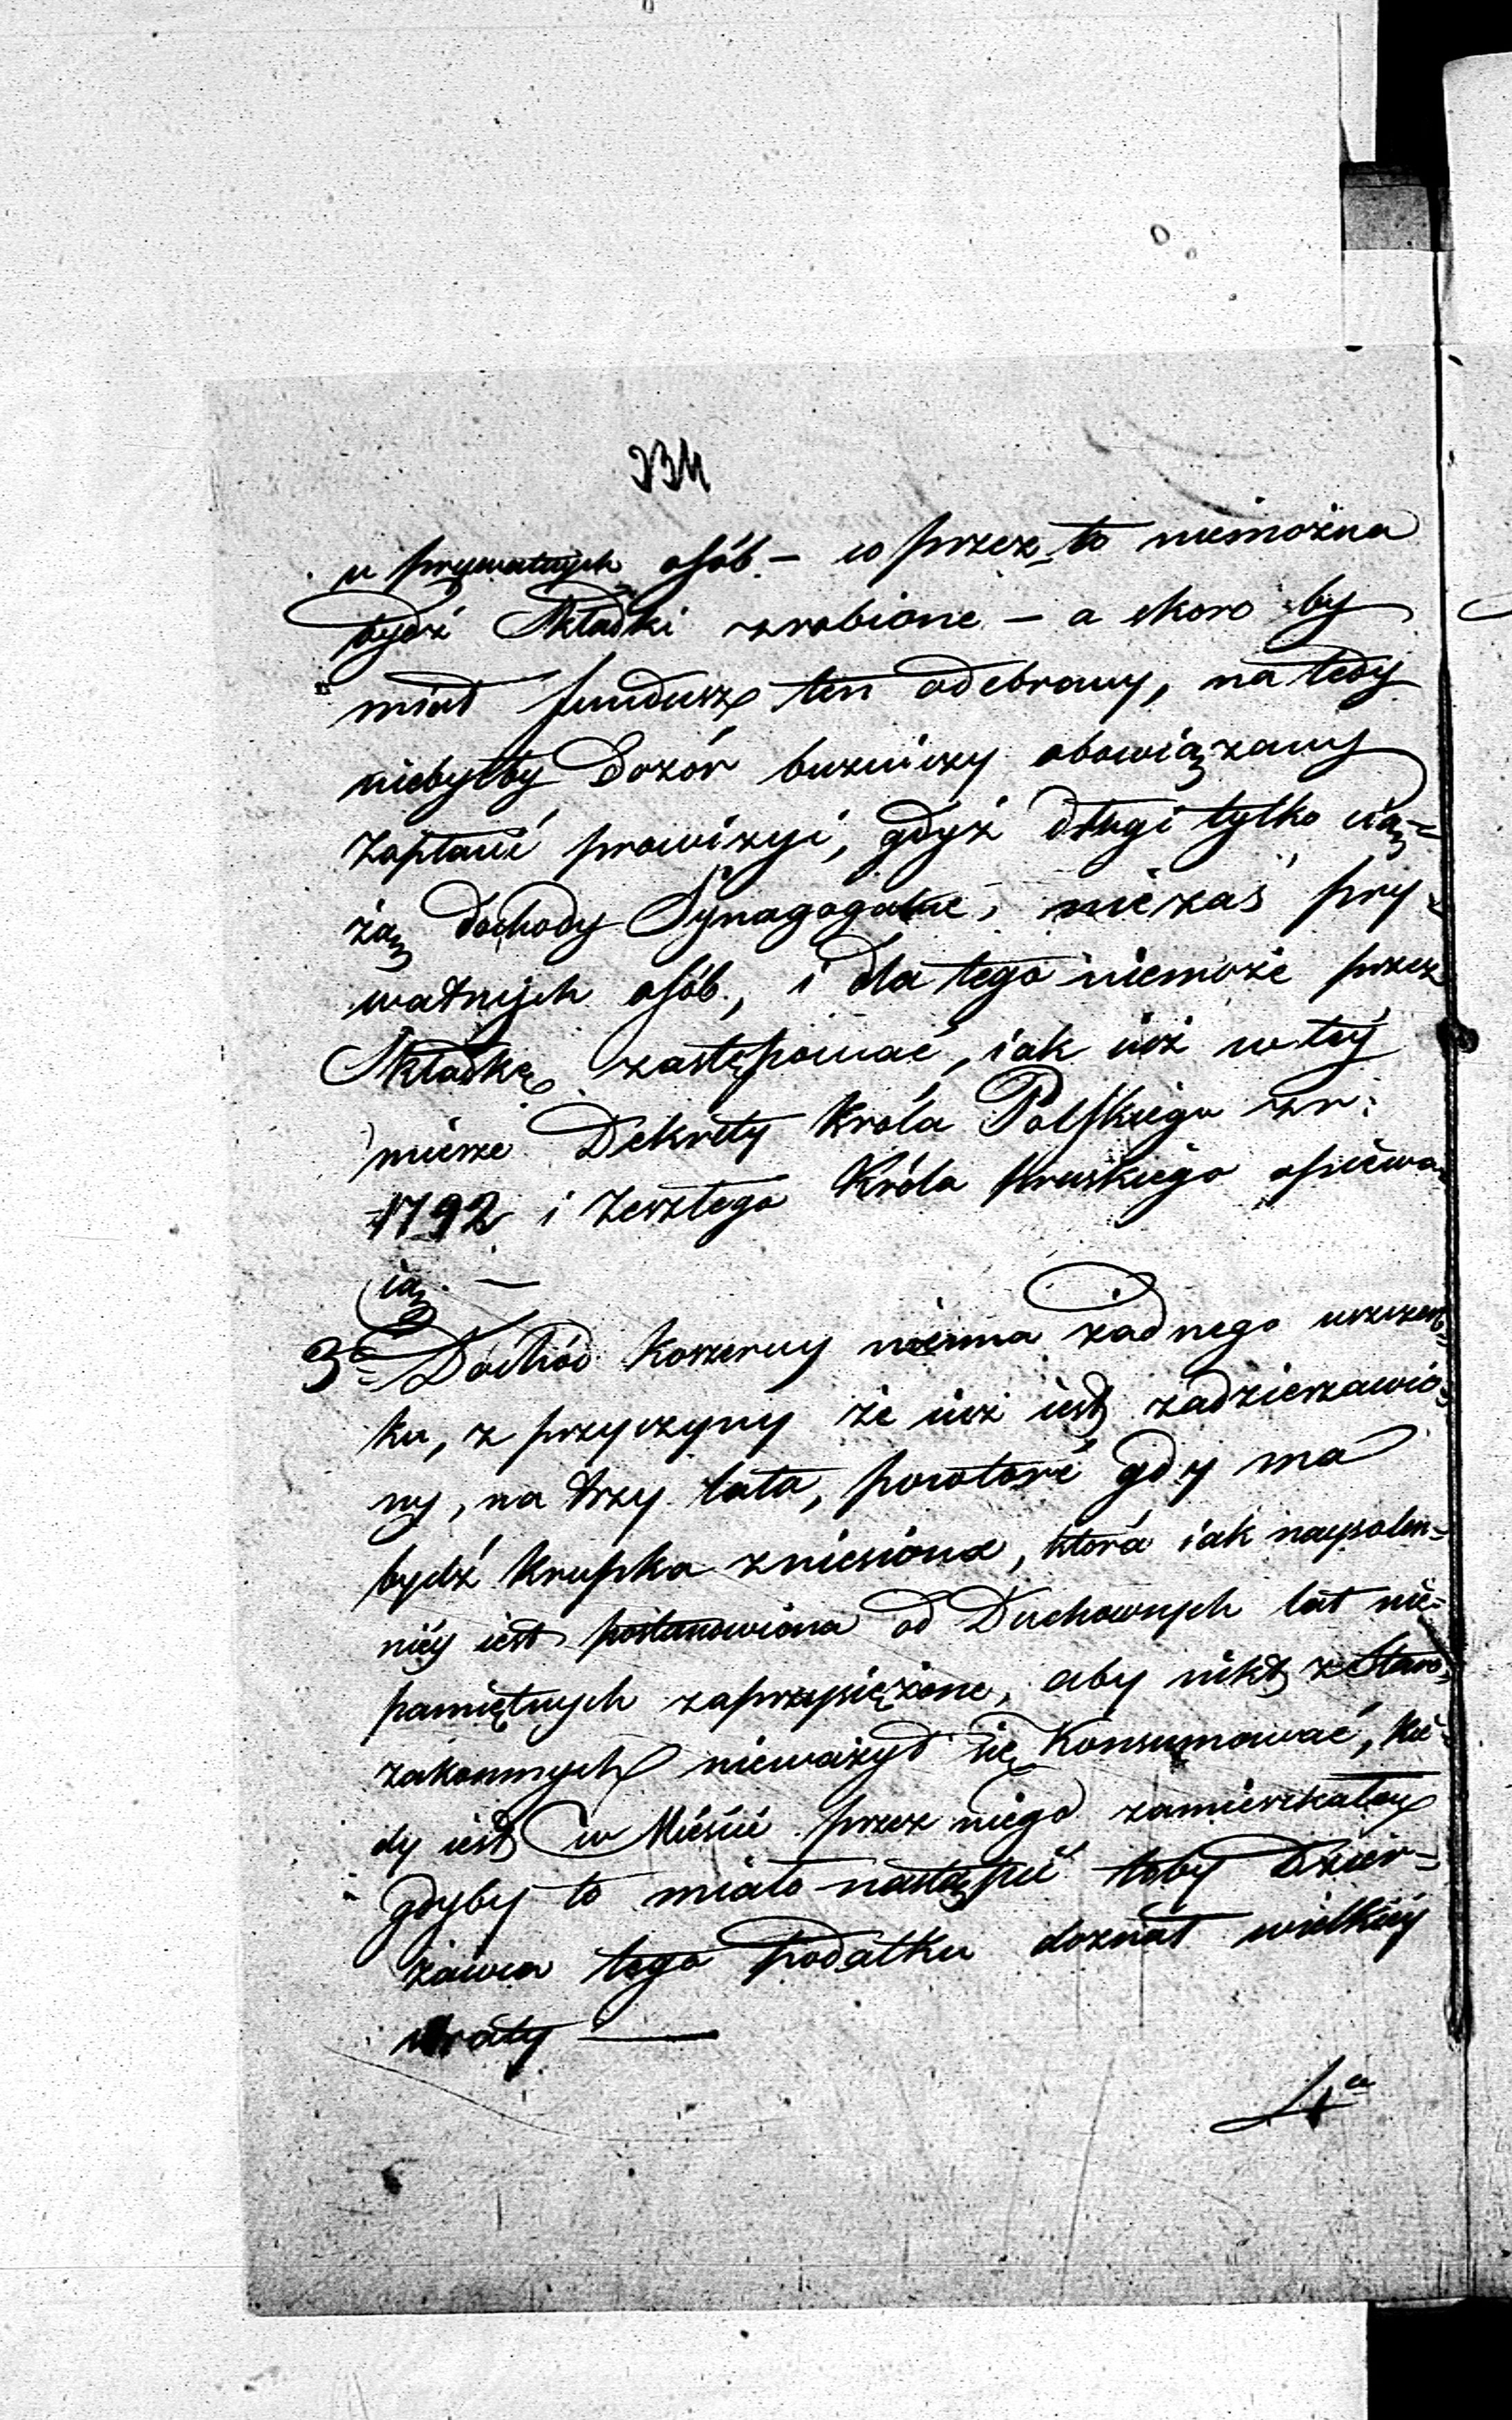 234
u prywatnych osób. – co przez to niemożna
bydź Składki zrobione – a skoro by
miał fundusz ten odebrany, na tedy
niebyłby Dozór bużniczy obowiązany
zapłacić prowizyi, gdyż długi tylko cią=
żą dochody Synagogalne, nie zaś pry=
watnych osób, i dla tego niemoże przez
Składkę zastępować, iak iuż w tey
mierze Dekrety Króla Polskiego z r:
1792 i Zeszłego Króla Pruskiego opiewa=
ią. —
3o Dochód koszerny niema żadnego uszczerb=
ku, z przyczyny że iuż iest zadzierzawio=
ny, na trzy lata, powtóre gdy ma
bydź krupka zniesiona, która iak naysolen=
niéy iest postanowiona od Duchownych lat nie=
pamiętnych zaprzysiężone, aby nikt z Staro=
zakonnych nieważył się Konsumować, kie=
dy iest w Mieście przez niego zamieszkałey
gdyby to miało nastąpić toby Dzier=
żawca tego podatku doznał wielkiéy
straty —
4o